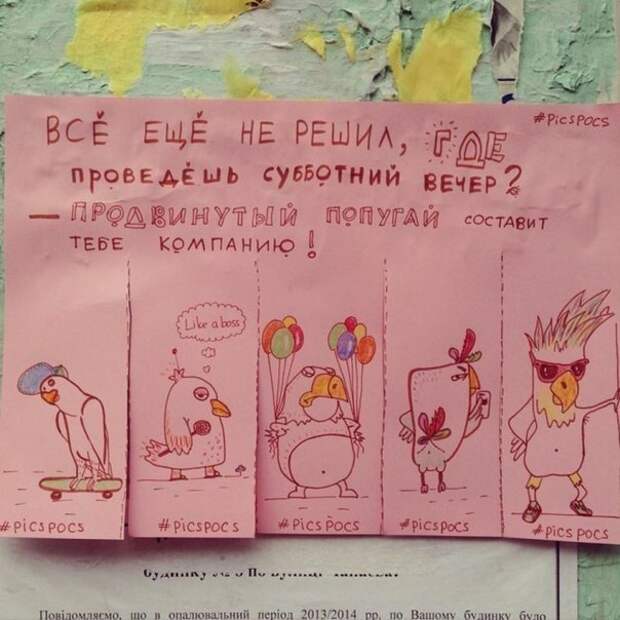 ВСЁ ЕЩЁ НЕ РЕШИЛ, ГДЕ
#PicsPOCS
ПРОВЕДЁШЬ СУББОТНИЙ ВЕЧЕР?
— ПРОДВИНУТЫЙ ПОПУГАЙ СОСТАВИТ
ТЕБЕ КОМПАНИЮ!
Like a boss
#PICSPOCS
#PICSPOCS
#PICSPOCS
#PICSPOCS
#PICSPOCS
будинку по вулиці
Повідомляємо, що в опалювальний період 2013/2014 рр. по Вашому будинку було